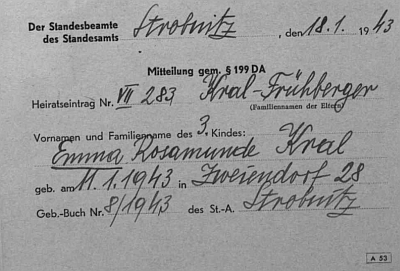 Der Standesbeamte
des Standesamts Strobnitz, den 18.1. 1943
Mitteilung gem. § 199 DA
Heiratseintrag Nr. VII 283 Kral-Frühberger
(Familiennamen der Eltern)
Vornamen und Familienname des 3. Kindes:
Emma Rosamunde Kral
geb. am 11.1.1943 in Zweiendorf 28
Geb.-Buch Nr. 8/1943 des St.-A. Strobnitz
A 53